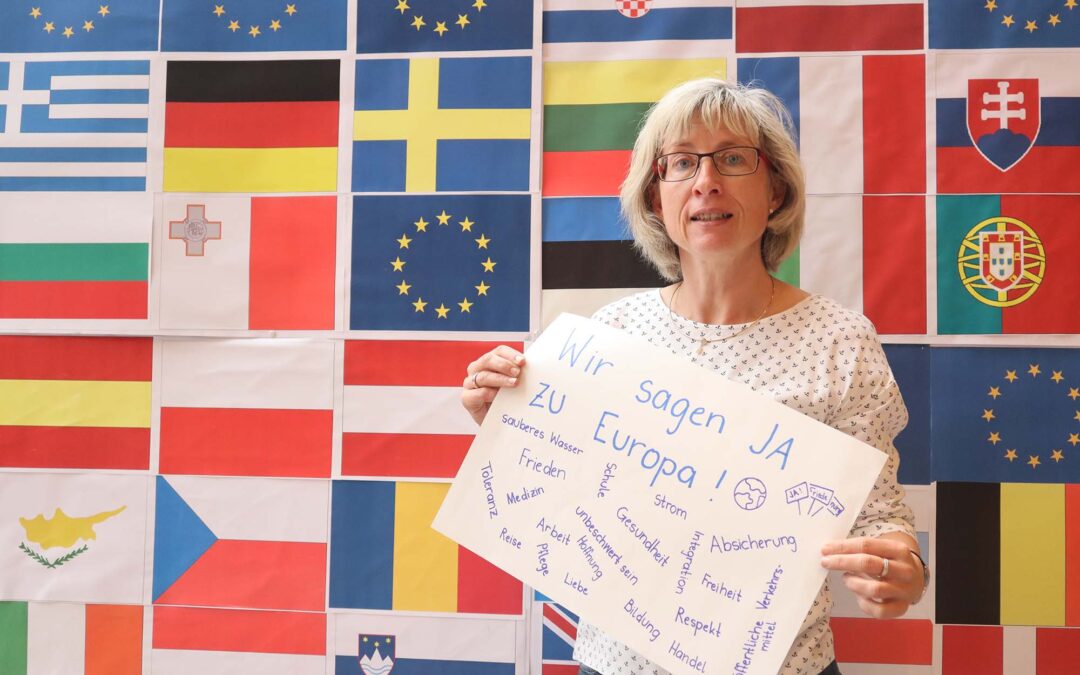 Wir sagen JA
zu Europa!
sauberes Wasser
Frieden
Schule
Strom
JA!
Friede
Toleranz
Medizin
unbeschwert sein
Gesundheit
Integration
Absicherung
Reise
Arbeit
Hoffnung
Freiheit
Pflege
Liebe
Bildung
Respekt
Handel
öffentliche Verkehrs-
mittel